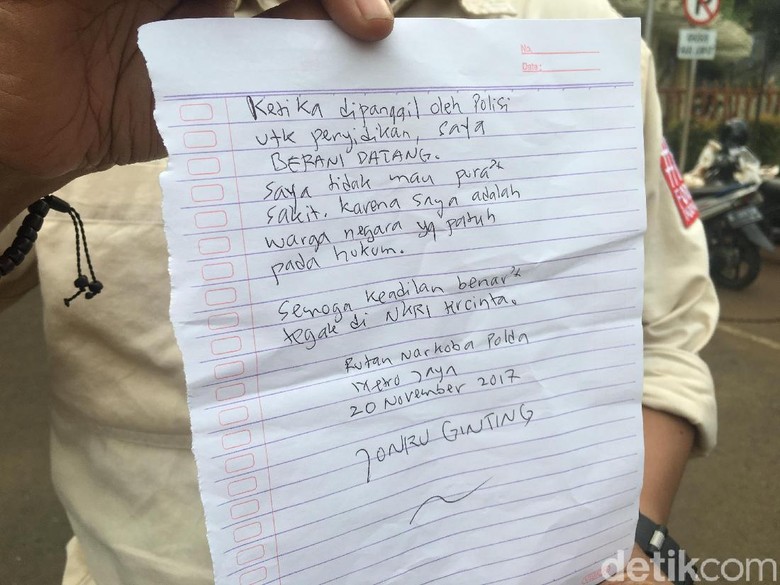 No.
Date :
Ketika dipanggil oleh Polisi
utk penyidikan, saya
BERANI DATANG.
Saya tidak mau pura²
sakit. karena saya adalah
warga negara yg patuh
pada hukum.
Semoga keadilan benar²
tegak di NKRI trcinta.
Rutan Narkoba Polda
Metro Jaya
20 November 2017
JONRU GINTING
detikcom